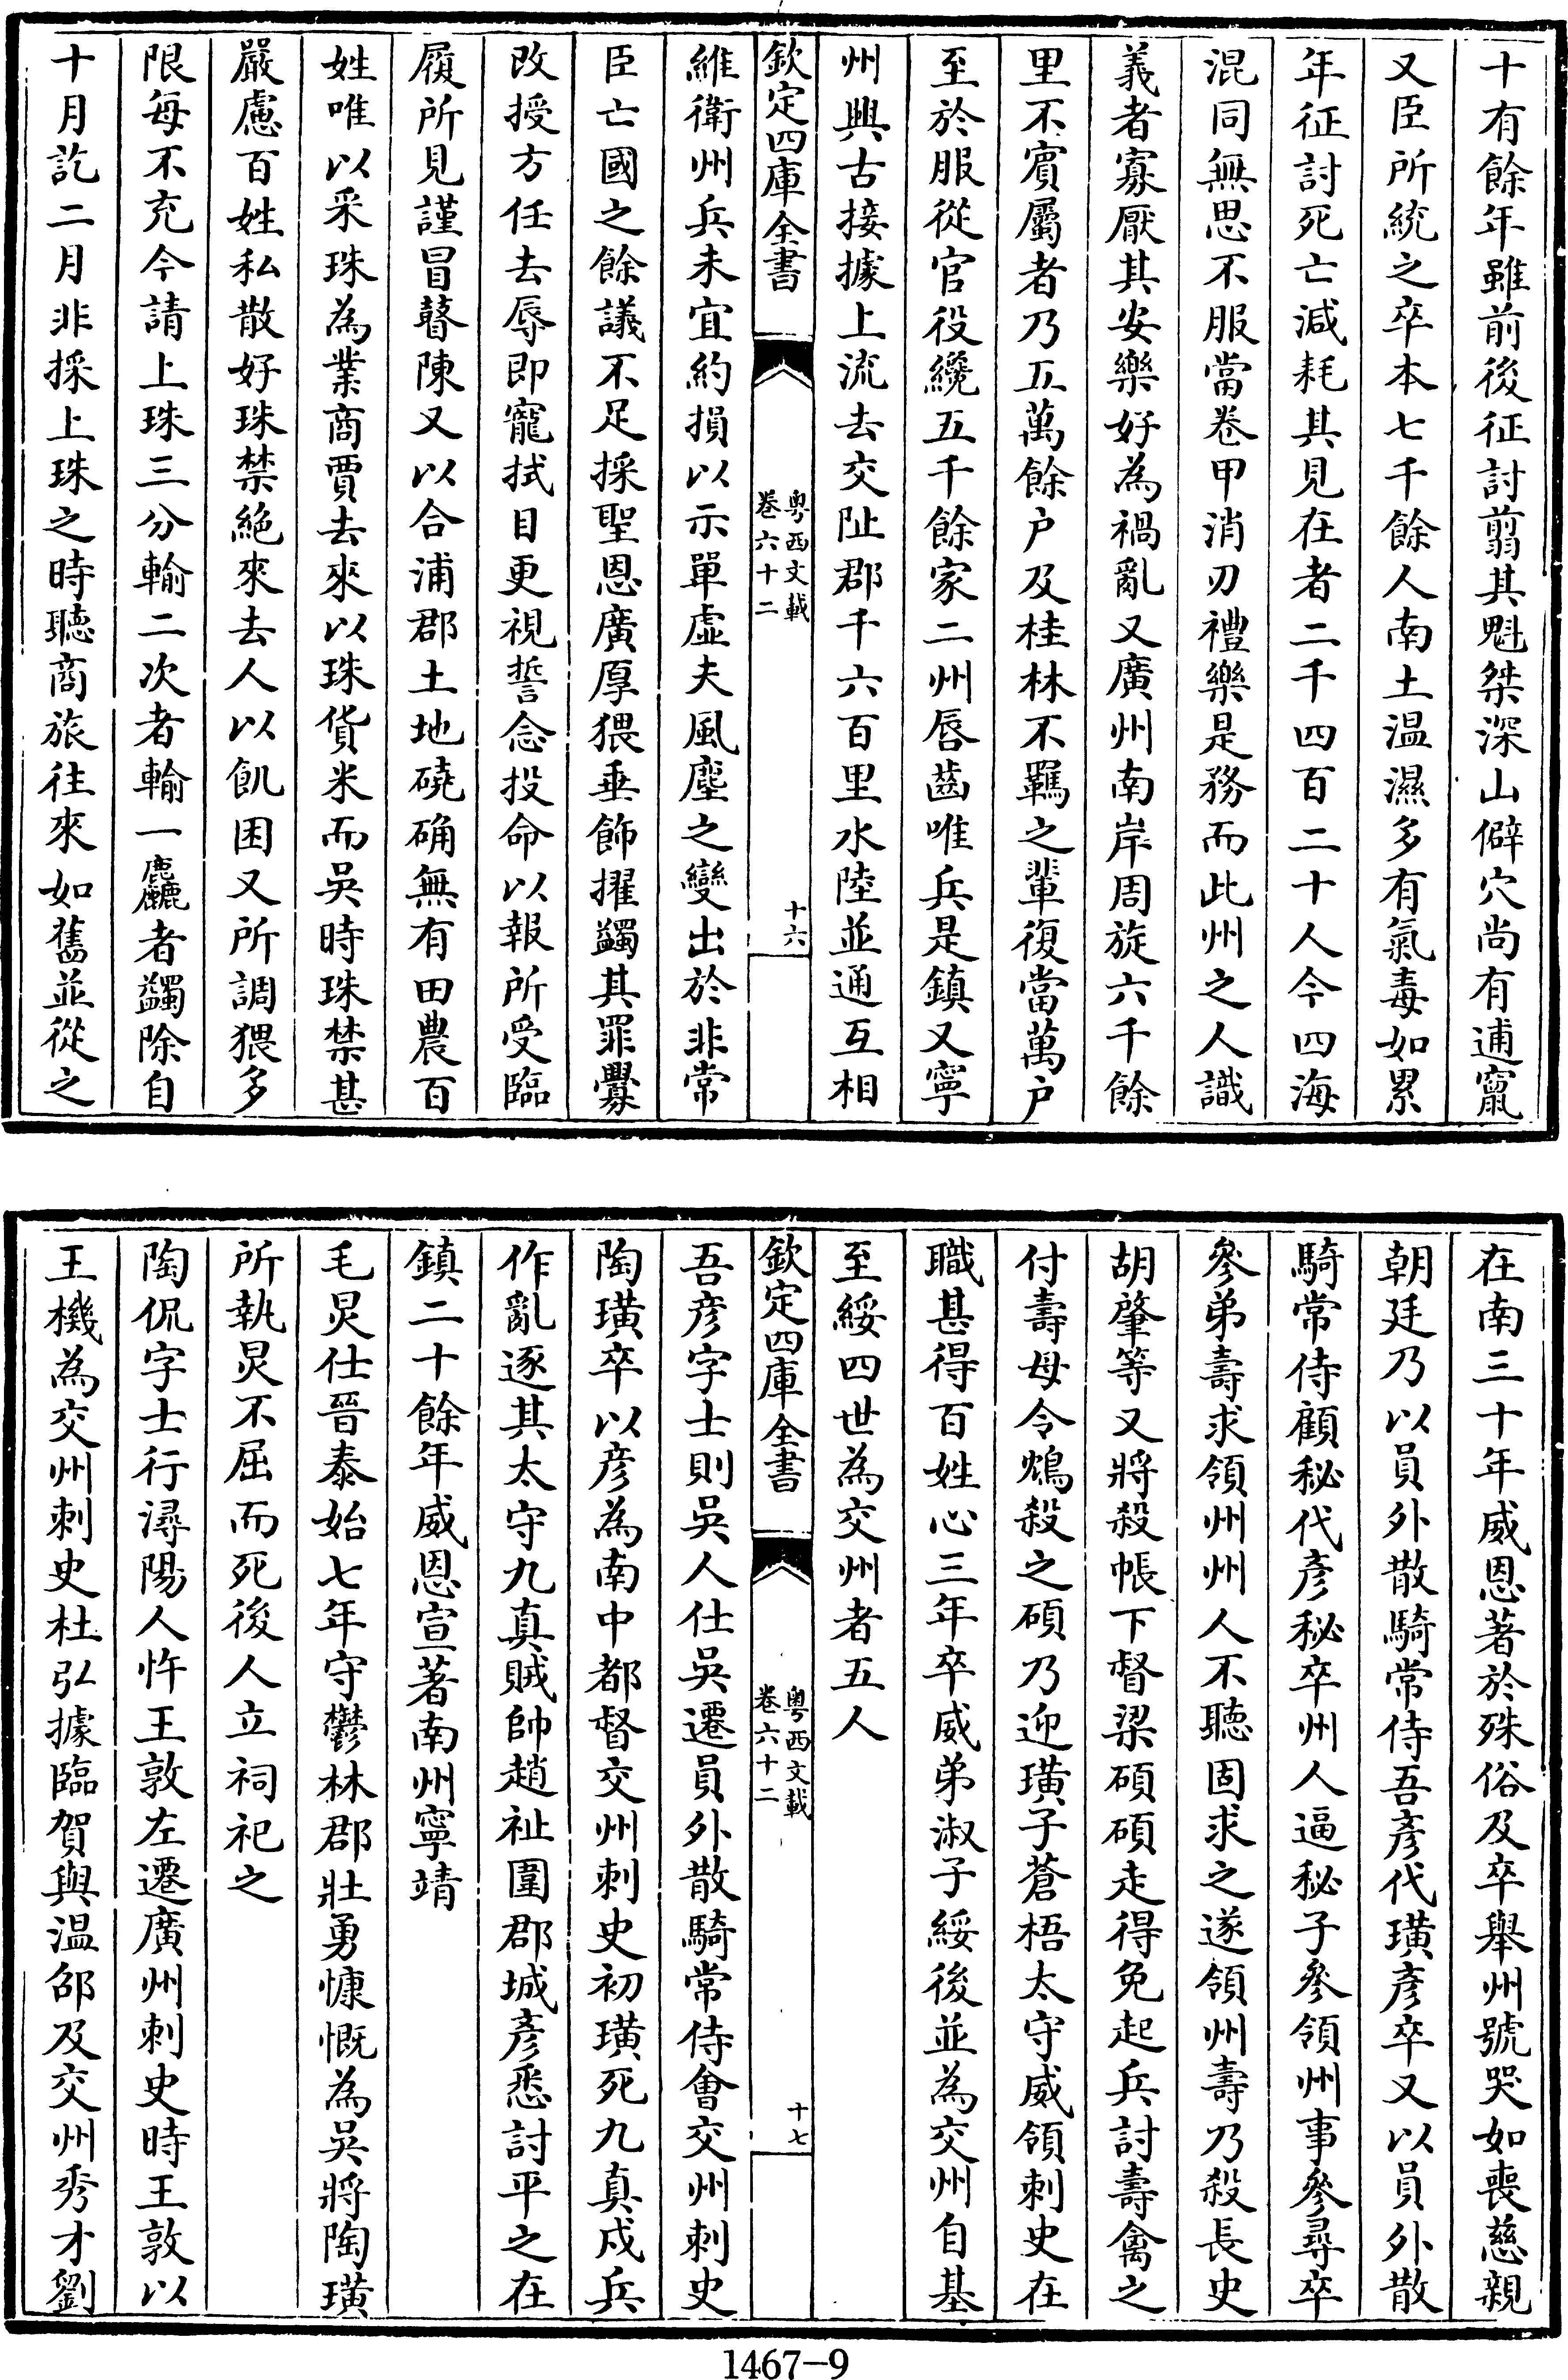 十有餘年雖前後征討翦其魁桀深山僻穴尚有逋竄
又臣所統之卒本七千餘人南土温濕多有氣毒如累
年征討死亡減耗其見在者二千四百二十人今四海
混同無思不服當卷甲消刃禮樂是務而此州之人識
義者寡厭其安樂好為禍亂又廣州南岸周旋六千餘
里不賓屬者乃五萬餘户及桂林不羈之輩復當萬户
至於服從官役纔五千餘家二州唇齒唯兵是鎮又寧
州興古接據上流去交阯郡千六百里水陸並通互相
欽定四庫全書
粤西文載
卷六十二
十六
維衛州兵未宜約損以示單虛夫風塵之變出於非常
臣亡國之餘議不足採聖恩廣厚猥垂飾擢蠲其罪釁
改授方任去辱即寵拭目更視誓念投命以報所受臨
履所見謹冒瞽陳又以合浦郡土地磽确無有田農百
姓唯以采珠為業商賈去來以珠貨米而吳時珠禁甚
嚴慮百姓私散好珠禁絶來去人以飢困又所調猥多
限每不充今請上珠三分輸二次者輸一麤者蠲除自
十月訖二月非採上珠之時聽商旅往來如舊並從之
在南三十年威恩著於殊俗及卒舉州號哭如喪慈親
朝廷乃以員外散騎常侍吾彥代璜彥卒又以員外散
騎常侍顧秘代彥秘卒州人逼秘子參領州事參尋卒
參弟壽求領州州人不聽固求之遂領州壽乃殺長史
胡肇等又將殺帳下督梁碩碩走得免起兵討壽禽之
付壽母令鴆殺之碩乃迎璜子蒼梧太守威領刺史在
職甚得百姓心三年卒威弟淑子綏後並為交州自基
至綏四世為交州者五人
欽定四庫全書
粤西文載
卷六十二
十七
吾彥字士則吳人仕吳遷員外散騎常侍會交州刺史
陶璜卒以彥為南中都督交州刺史初璜死九真戍兵
作亂逐其太守九真賊帥趙祉圍郡城彥悉討平之在
鎮二十餘年威恩宣著南州寧靖
毛炅仕晉泰始七年守鬱林郡壯勇慷慨為吳將陶璜
所執炅不屈而死後人立祠祀之
陶侃字士行潯陽人忤王敦左遷廣州刺史時王敦以
王機為交州刺史杜弘據臨賀與温邵及交州秀才劉
1467-9